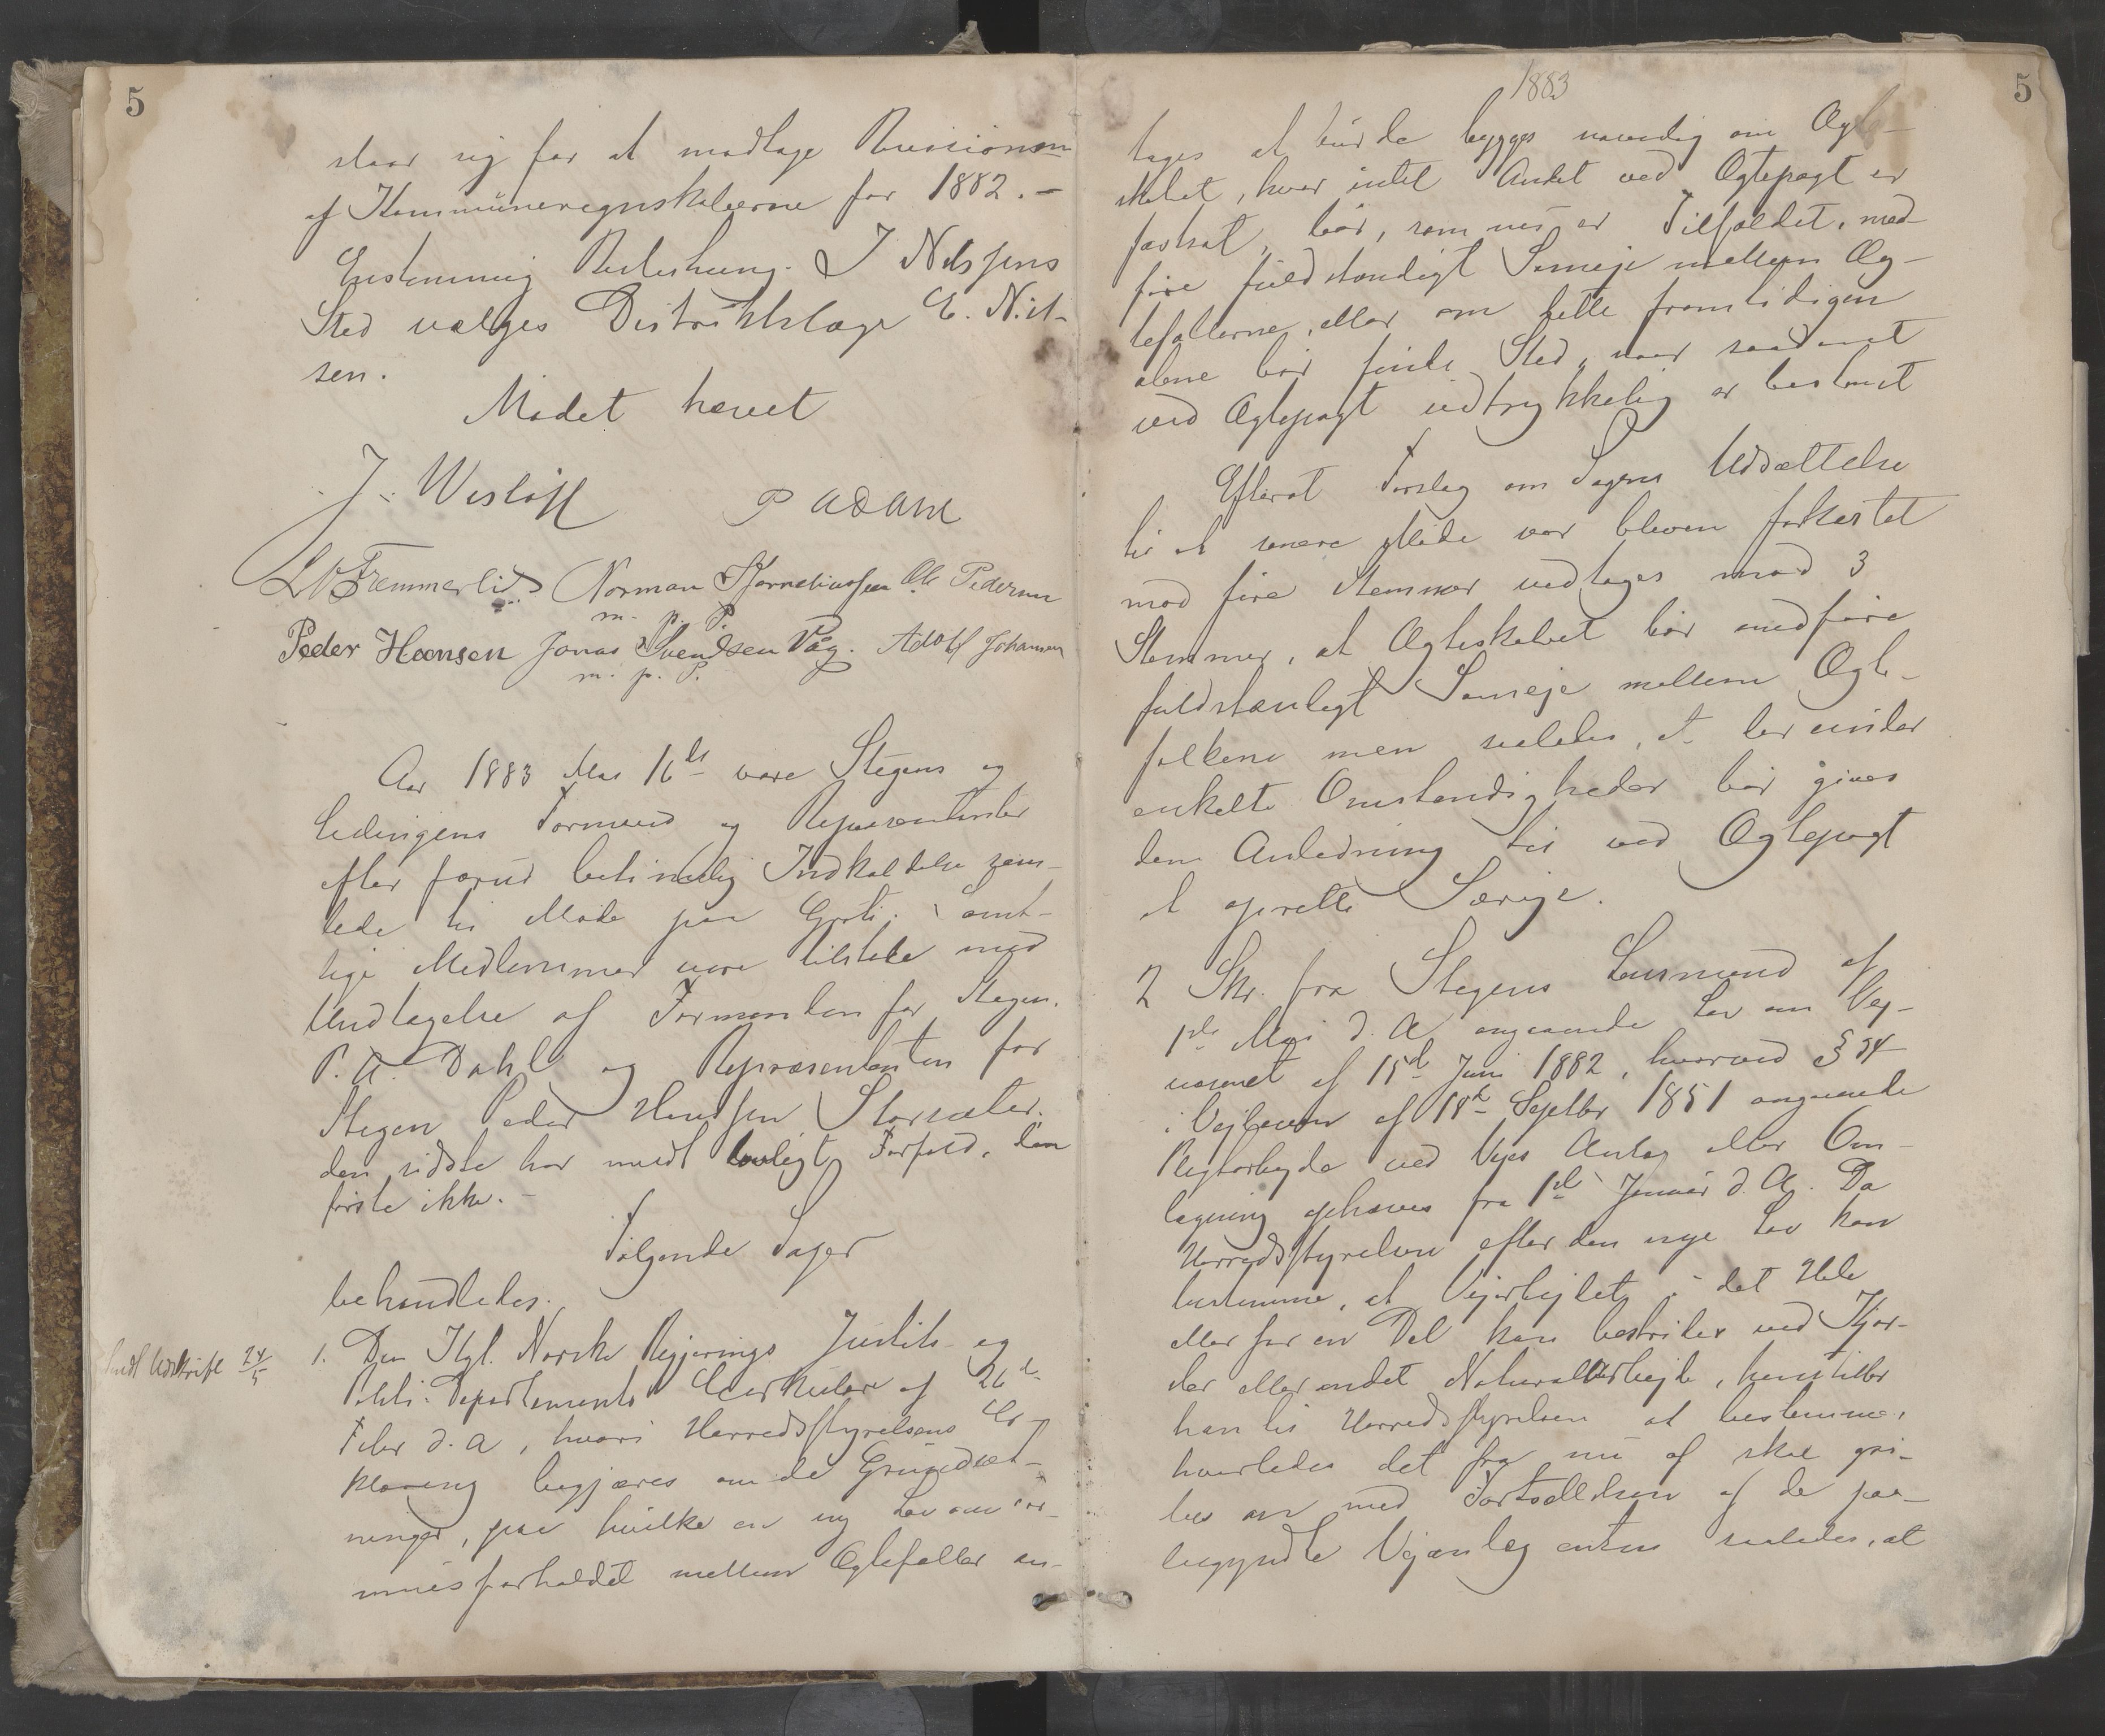 5
slaar sig for at modtage Revisionen
af Kommuneregnskaberne for 1882. –
Enstemmig Beslutning. I Nilssens
Sted vælges Distriktslæge E. Nil-
sen.
Mødet hævet
J. Wisløff P ADahl
Norman Korneliussen Ole Pedersen
m. p. P.
Peder Hansen Jonas Svendsen Våg. Adolf Johansen
m. p. P.
Aar 1883 Mai 16de vare Stegens og
Ledingens Formænd og Repræsentanter
efter forud betimelig Indkaldelse sam-
lede til Møde paa Grøti. Samt-
lige Medlemmer vare tilstede med
Undtagelse af Formanden for Stegen.
P. A. Dahl og Repræsentanten for
Stegen Peder Hansen Storsæter.
den sidste har meldt lovligt Forfald, den
første ikke. –
Følgende Sager
behandledes.
Sendt Udskrift 24/5
1. Den Kgl. Norske Regjerings Justits og
Politi-Departements Cirkulær af 26de
Febr d. A, hvori Herredsstyrelsens Er-
klæring begjæres om de Grundsæt-
ninger, paa hvilke en ny Lov om For-
muesforholdet mellem Ægtefæller an-
1883
5
tages at burde bygges navnlig om Ægte-
skabet, hvor intet Andet ved Ægtepagt er
fastsat, bør, som nu er Tilfældet, med-
føre fuldstændigt Sameje mellem Æg-
tefællerne, eller om dette fremtidigen
alene bør finde Sted, naar saadant
ved Ægtepagt udtrykkelig er bestemt
Efterat Forslag om Sagens Udsættelse
til et senere Møde var bleven forkastet
mod fire Stemmer vedtages mod 3
Stemmer, at Ægteskabet bør medføre
fuldstændigt Sameje mellem Ægte-
folkene men saaledes, at der under
enkelte Omstændigheder bør gives
dem Anledning til ved Ægtepagt
at oprette Særeje.
2 Skr. fra Stegens Lensmand af
1ste Mai d. A angaaende Lov om Vej-
væsenet af 15de Juni 1882, hvorved § 34
i Vejloven af 15de Septbr 1851 angaaende
Pligtarbejde ved Vejes Anlæg eller Om-
lægning ophæves fra 1ste Januar d. A. Da
Herredsstyrelsen efter den nye Lov kan
bestemme, at Vejarbejdet i det Hele
eller for en Del kan bestrides ved Kjør-
sler eller andet Naturalarbejde, henstiller
han til Herredsstyrelsen at bestemme,
hvorledes det fra nu af skal gri-
bes an med Fortsættelsen af de paa-
begyndte Vejanlæg enten saaledes, at